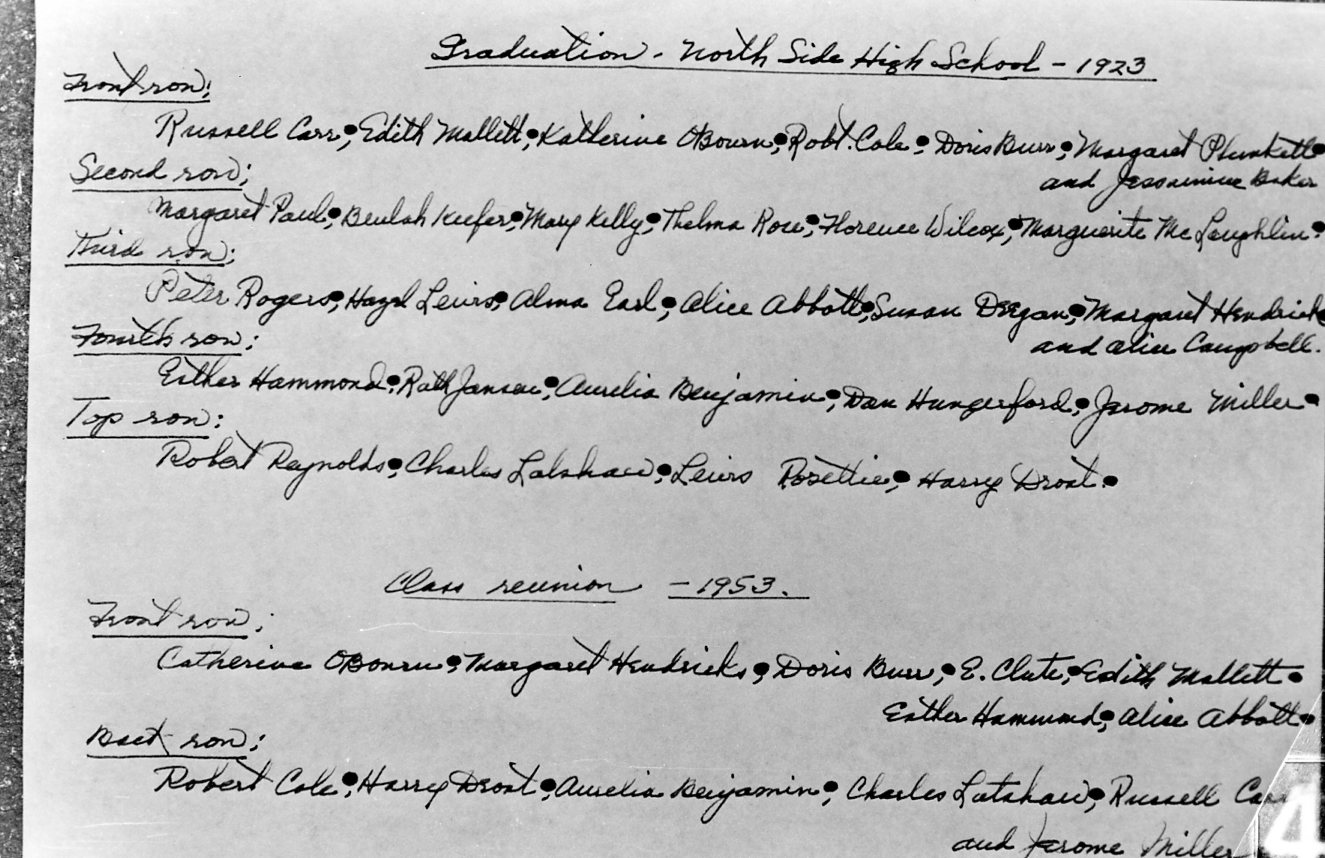 Graduation - North Side High School - 1923
Front row;
Russell Carr, Edith Mallett, Katherine OBourn, Robt. Cole, Doris Burr, Margaret Plunkett
and Jessamine Baker
Second row;
Margaret Paul, Beulah Keefer, Mary Kelly, Thelma Rose, Florence Wilcox, Marguerite McLaughlin.
Third row;
Peter Rogers, Hazel Lewis, Alma Earl, Alice Abbott, Susan Deegan, Margaret Hendrick
and Alice Campbell.
Fourth row;
Esther Hammond, Ruth Jansen, Aurelia Benjamin, Dan Hungerford, Jerome Miller.
Top row:
Robert Reynolds, Charles Latshaw, Lewis Rosettie, Harry Droat.
Class reunion - 1953.
Front row;
Catherine OBourn, Margaret Hendricks, Doris Burr, E. Clute, Edith Mallett.
Esther Hammond, Alice Abbott.
Back row;
Robert Cole, Harry Droat, Aurelia Benjamin, Charles Latshaw, Russell Carr
and Jerome Miller
4